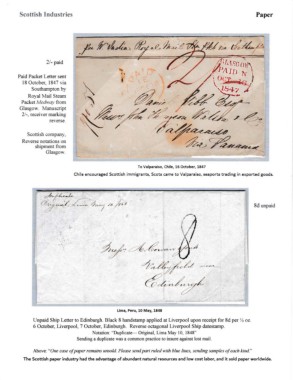 Scottish Industries
Paper
2/- paid
Paid Packet Letter sent
18 October, 1847 via
Southampton by
Royal Mail Steam
Packet Medway from
Glasgow. Manuscript
2/-, receiver marking
reverse.
Scottish company,
Reverse notations on
shipment from
Glasgow.
per W. India Royal Mail
GLASGOW
PAID
1847
2
Valparaiso
Via Panama
To Valparaiso, Chile, 16 October, 1847
Chile encouraged Scottish immigrants, Scots came to Valparaiso, seaports trading in exported goods.
8d unpaid
Duplicate
Original, Lima May 10 1848
8
Messrs
Valleyfield
Edinburgh
Lima, Peru, 10 May, 1848
Unpaid Ship Letter to Edinburgh. Black 8 handstamp applied at Liverpool upon receipt for 8d per ½ oz.
6 October, Liverpool, 7 October, Edinburgh. Reverse octagonal Liverpool Ship datestamp.
Notation "Duplicate— Original, Lima May 10, 1848"
Sending a duplicate was a common practice to insure against lost mail.
Above: "One case of paper remains unsold. Please send part ruled with blue lines, sending samples of each kind"
The Scottish paper industry had the advantage of abundant natural resources and low cost labor, and it sold paper worldwide.